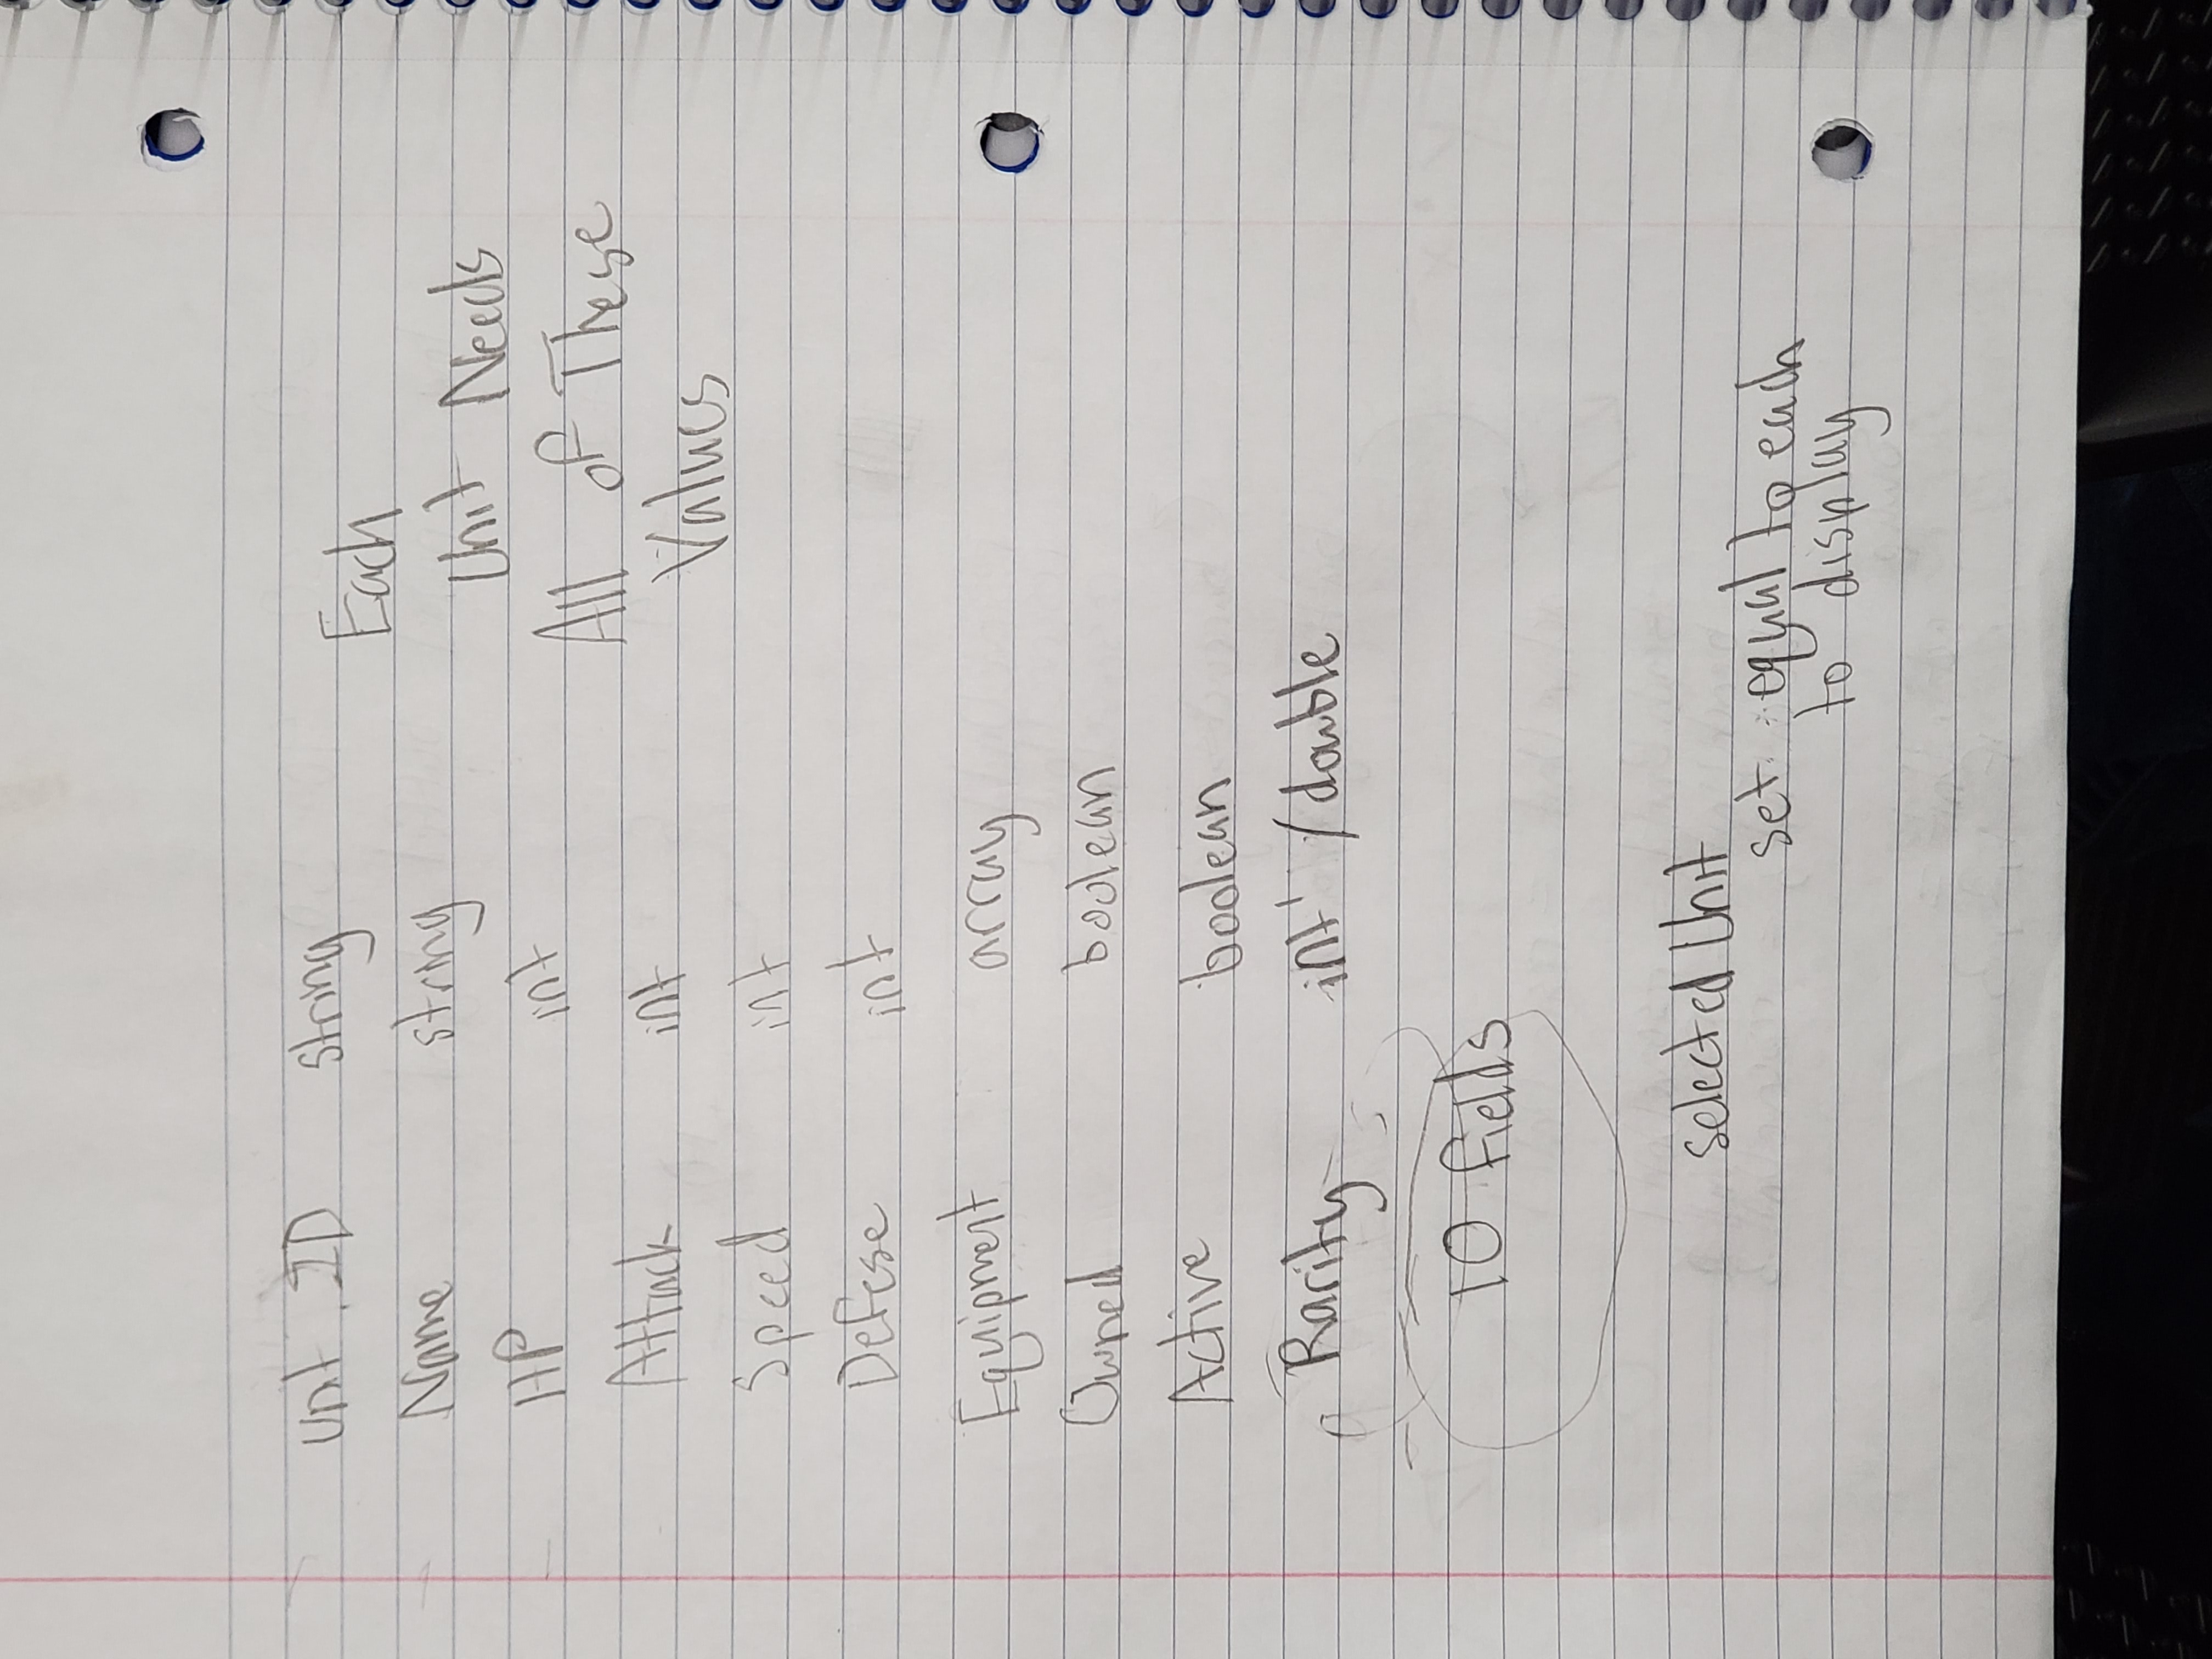 Unit. ID string
Name string
HP int
Attack int
Speed int
Defese int
Equipment array
Owned boolean
Active boolean
Rarity int' /double
10 fields
Each
Unit Needs
All of These
Values
selected Unit
set equal to each
to display